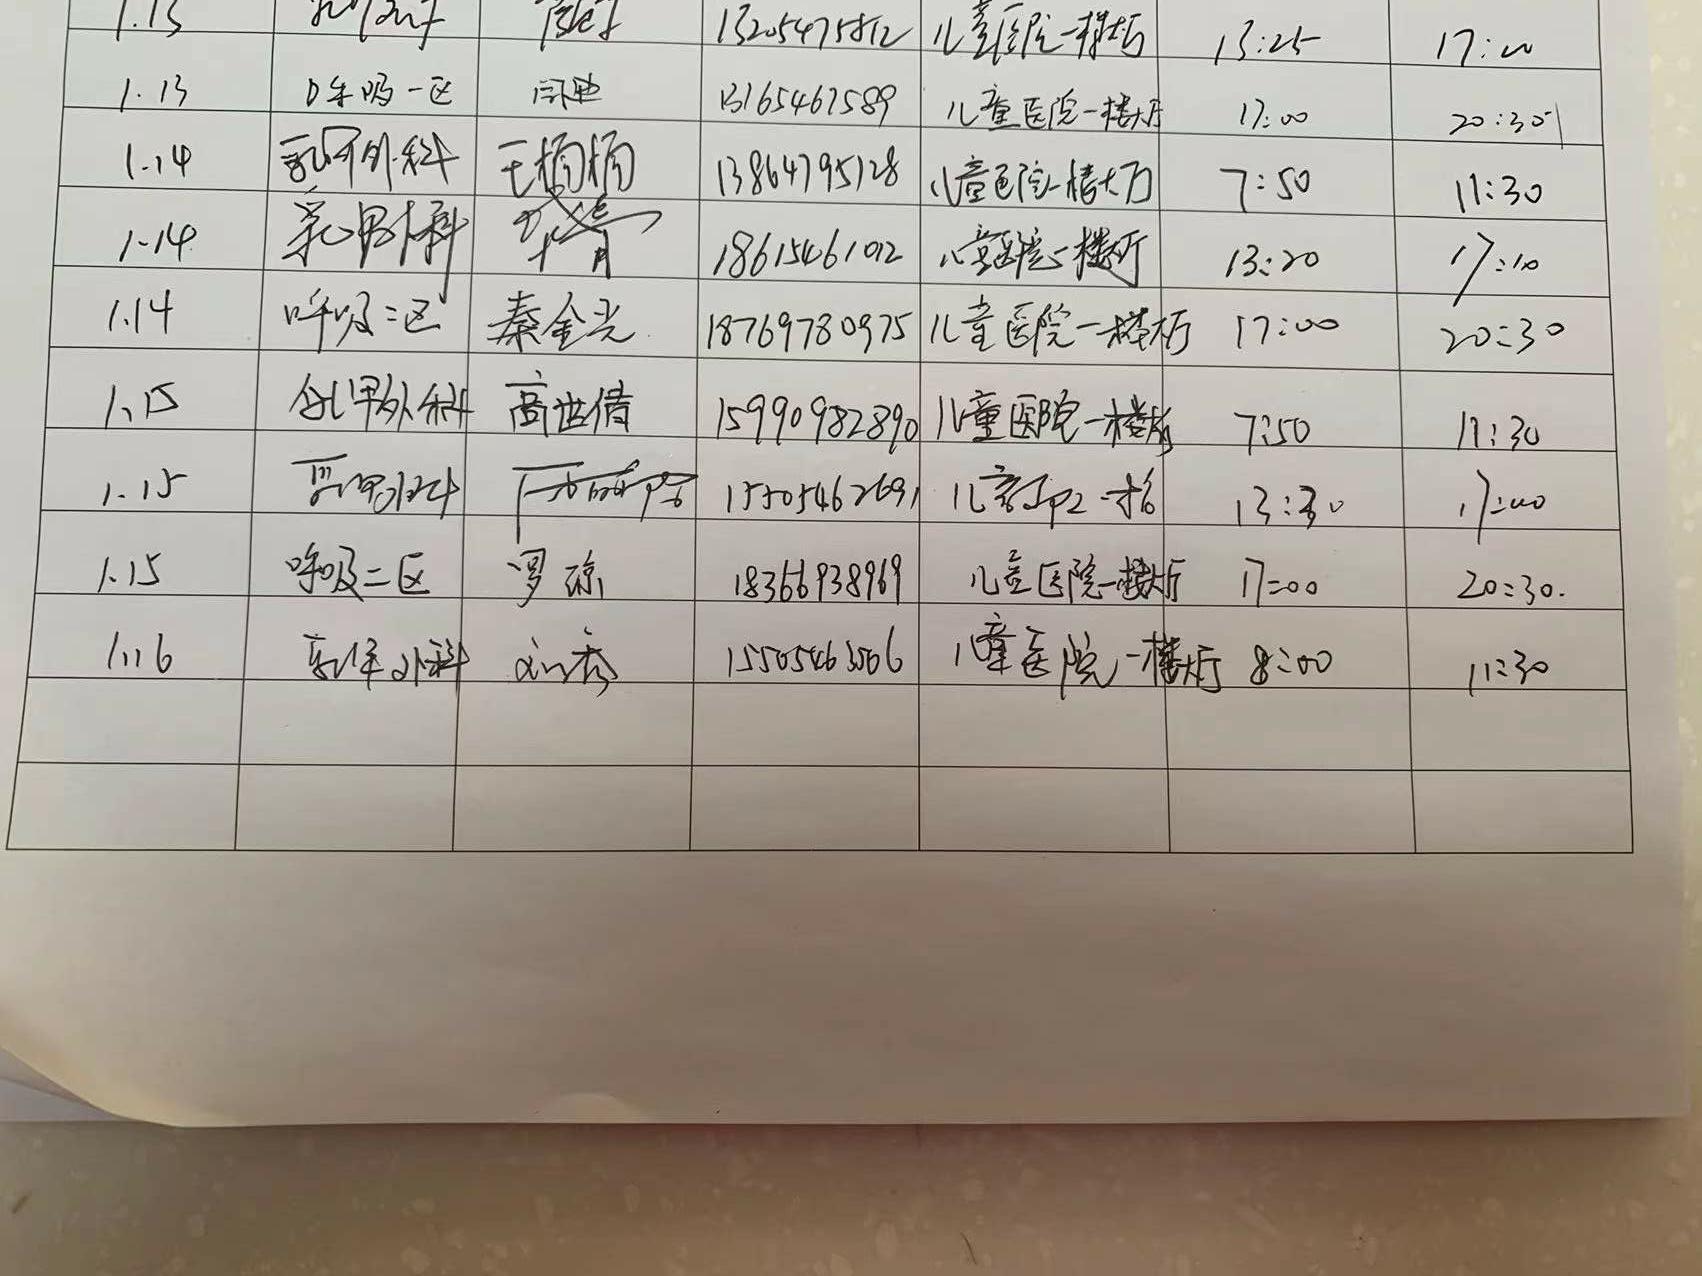 1.13 13205475812 儿童医院一楼大厅 13:25 17:00
1.13 呼吸一区 13165467589 儿童医院一楼大厅 17:00 20:30
1.14 乳甲外科 王楠楠 13864795128 儿童医院一楼大厅 7:50 11:30
1.14 乳甲外科 18615461012 儿童医院一楼大厅 13:20 17:10
1.14 呼吸二区 秦金光 18769780975 儿童医院一楼大厅 17:00 20:30
1.15 乳甲外科 高世倩 15990982890 儿童医院一楼大厅 7:50 11:30
1.15 乳甲外科 15505462691 儿童 13:30 17:00
1.15 呼吸二区 罗琼 18366938969 儿童医院一楼大厅 17:00 20:30.
1.16 乳甲外科 刘秀 15505463506 儿童医院一楼大厅 8:00 11:30